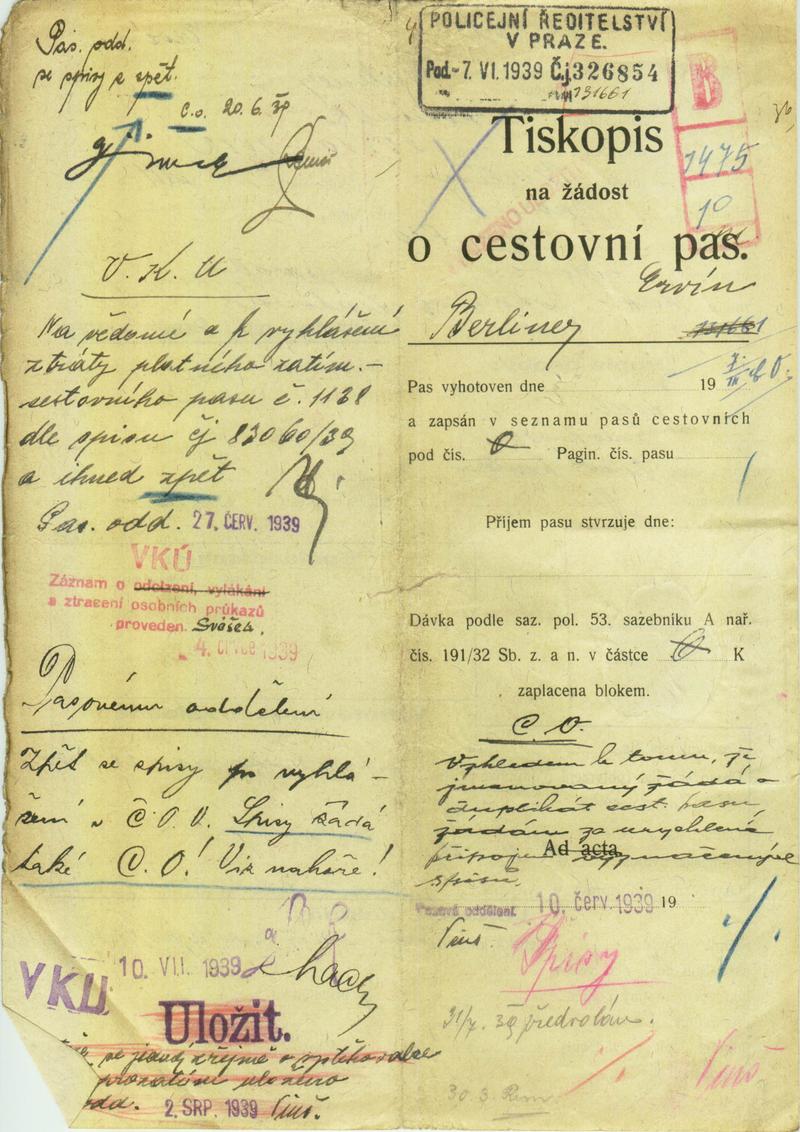 Pas. odd.
se spisy s zpět.
C.o. 20.6.39
V. K. U
Na vědomí a k vyhlášení
ztráty platného zatím. –
cestovního pasu č. 1128
dle spisu čj 83060/39
a ihned zpět
Pas. odd. 27. ČERV. 1939
VKÚ
Záznam o odcizení, vylákání
a ztracení osobních průkazů
proveden. Svášek.
4. ČERVCE 1939
Pasovému oddělení
Zpět se spisy po vyhlá-
šení v Č.O.V. Spisy žádá
také C.O! Viz nahoře!
10. VII. 1939
VKU
Uložit.
se jedná zřejmě o
prozatím uloženo
odd. 2. SRP. 1939
POLICEJNÍ ŘEDITELSTVÍ
V PRAZE.
Pod -7. VI. 1939 Č.j. 326854
131661
B
1475
10
Tiskopis
na žádost
o cestovní pas.
Ervín
Berliner
131661
Pas vyhotoven dne 19
a zapsán v seznamu pasů cestovních
pod čís. Pagin. čís. pasu
Příjem pasu stvrzuje dne:
Dávka podle saz. pol. 53. sazebníku A nař.
čís. 191/32 Sb. z. a n. v částce K
zaplacena blokem.
C. O.
Vzhledem k tomu, že
jmenovaný žádá o
duplikát cest. pasu,
žádám za urychlené
připojení
Ad acta
spisů.
Pasové oddělení. 10. červ. 1939 19
Spisy
31/7. 39 předvolán.
30. 3.